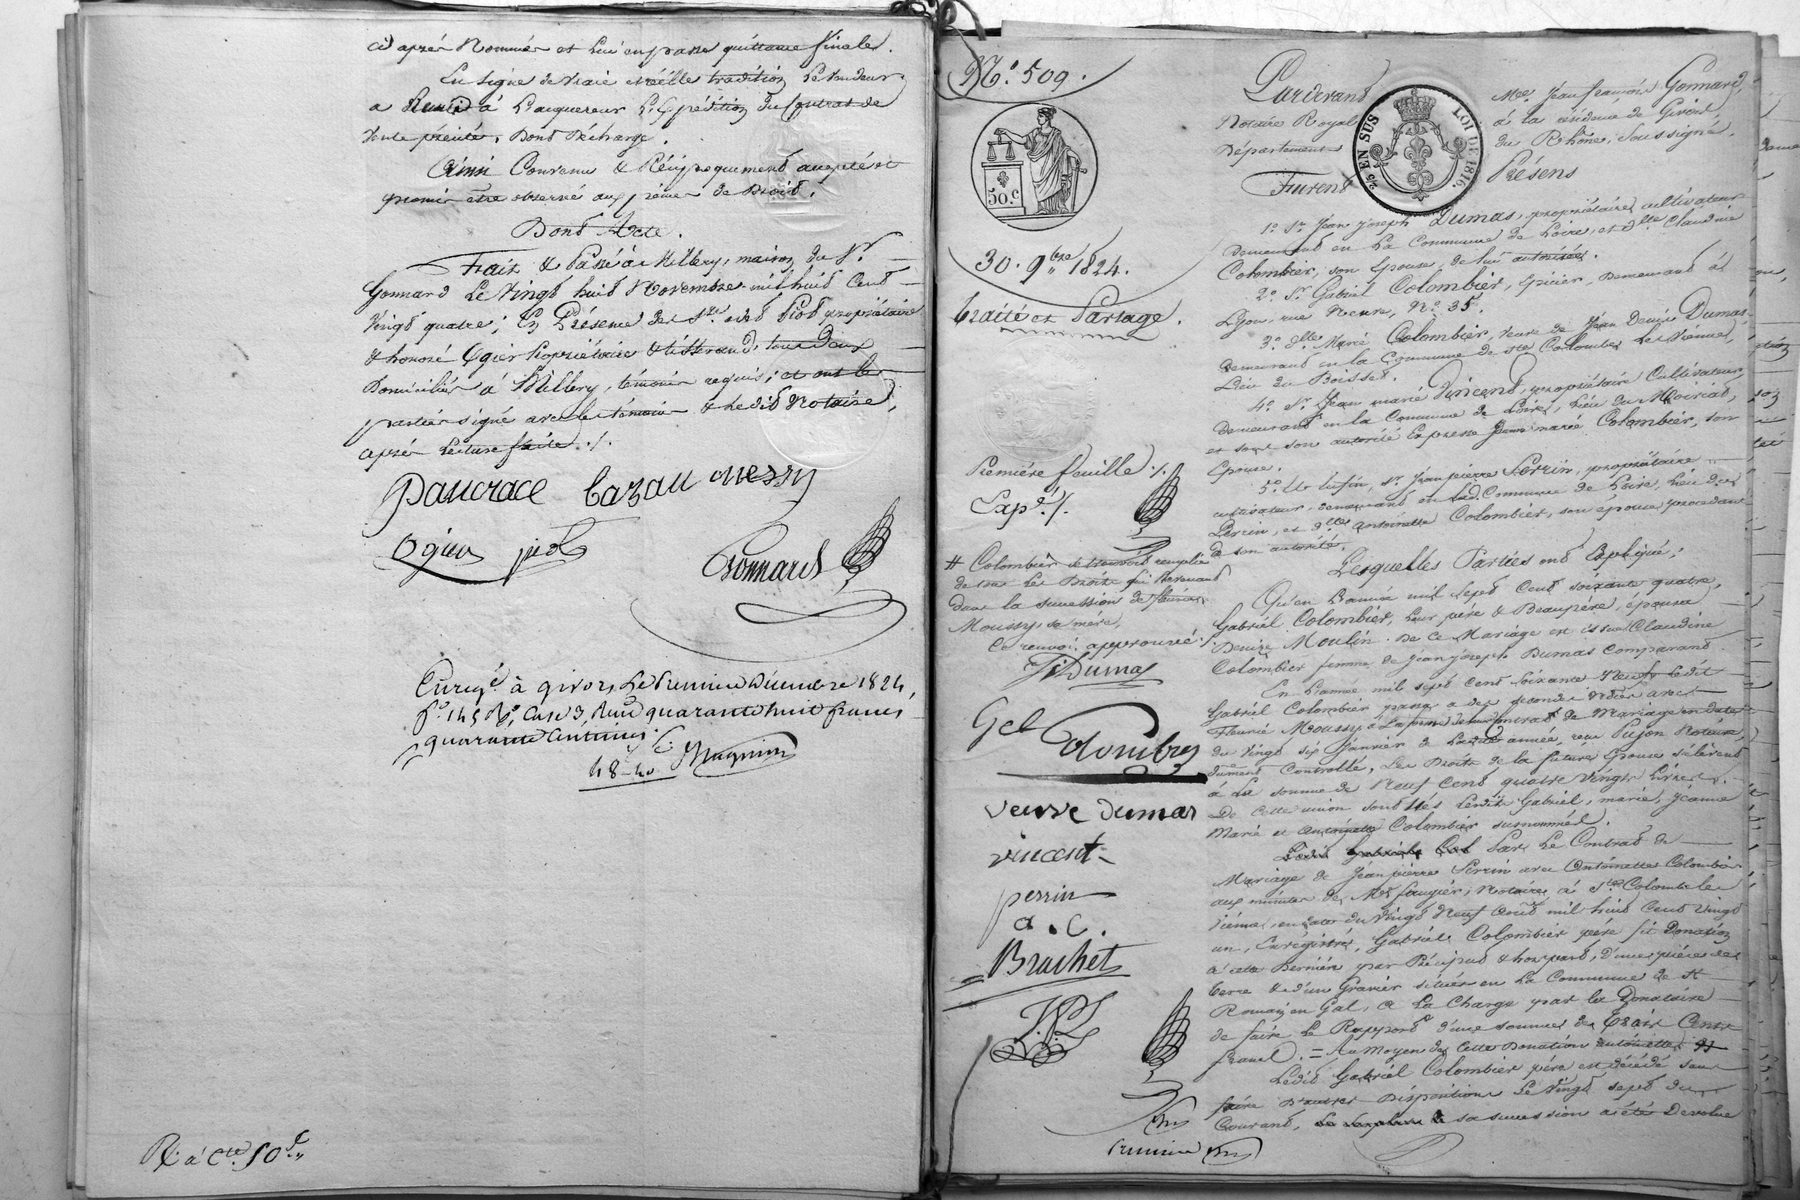 ci après Nommés et lui en passe quittance finale.
En signe de vraie et réelle tradition Le Vendeur
a Remis à L'acquereur L'Expédition du Contrat de
Vente précité, Dont Décharge.
Ainsi Convenu & Réciproquement accepté et
promis être observé aux peines de Droit.
Dont Acte.
Fait & Passé à Millery, maison du Sr
Gonnard Le Vingt huit Novembre mil huit Cent
Vingt quatre; En Présence des Srs piot propriétaire
& honoré Ogier propriétaire & tisserand, tous deux
Domiciliés à Millery, témoins requis; et ont les
parties signé avec les témoins & Ledit Notaire,
après Lecture faite ./.
Pancrace Cazau messy
Ogier piot
Gonnard
Enregé à givors Le Premier Décembre 1824,
fo 145 Ro, Case 3, Reçu quarante huit francs
quarante Centimes.
48-40 Magnin
R. à Cte 50 c.
No. 509.
30. 9bre 1824.
traité et Partage.
50.c
25 EN SUS LOI DE 1816.
Pardevant Mee Jean françois Gonnard,
Notaire Royal à la résidence de Givors
Département du Rhône, soussigné,
Furent Présens
1o. Sr Jean Joseph Dumas, propriétaire cultivateur
Demeurant en La Commune de Loire, et dlle Claudine
Colombier, son épouse, de lui autorisée.
2o. Sr Gabriel Colombier, épicier, Demeurant à
Lyon, rue Neuve, No. 35.
3o. dlle Marie Colombier, veuve de Jean Denis Dumas,
Demeurant en la Commune de Ste Colombe Les Vienne,
Lieu du Boisset.
4o. Sr Jean marie Vincent, propriétaire Cultivateur
Demeurant en la Commune de Loire, Lieu du Moiriat,
et sous son autorité Expresse Jeanne marie Colombier, son
Epouse.
5o. Et Enfin, Sr Jean pierre Perrin, propriétaire
cultivateur, demeurant en lad Commune de Loire, Lieu de
Perrin, et dlle Antoinette Colombier, son épouse procédant
de son autorité.
Lesquelles Parties ont Expliqué;
Qu'en L'année mil sept Cent soixante quatre,
Gabriel Colombier, Leur père & Beaupère, épousa
Denise Moulin. De Ce Mariage est issue Claudine
Colombier femme de Jean joseph Dumas Comparant.
En L'année mil sept Cent soixante Neuf Ledit
Gabriel Colombier passa a des seconde Noces avec
Fleurie Moussy. contrat de Mariage en date
du Vingt six Janvier de Ladite année, reçu Pujon Notaire,
dûment Controllé, Les Droits de la future épouse s'élèvent
à La somme de Neuf Cent quatre Vingt Livres.
De Cette union sont Nés Ledit Gabriel, marie, Jeanne
Marie et Antoinette Colombier susnommés.
Par Le Contrat de
Mariage de Jean pierre Perrin avec Antoinette Colombier
aux minutes de Me faugier, Notaire, à Ste Colombe les
Vienne, en date du Vingt Neuf août mil huit Cent Vingt
un, Enregistré, Gabriel Colombier père fit Donation
à cette Dernière par Préciput & hors part, D'une pièce de
terre & d'un Gravier situés en La Commune de St
Romain en Gal, à La Charge par la Donataire
de faire Le Rapport d'une somme de Trois Cents
francs. = Au Moyen de Cette Donation Antoinette #
Ledit Gabriel Colombier père est décédé sans
faire D'autres Dispositions Le Vingt sept du
Courant, sa succession a été Dévolue
Première feuille ./.
Expé ./.
# Colombier se trouvoit remplie
de tous Les Droits qui Revenant
Dans la succession de fleurie
Moussy, sa mère,
Ce renvoi approuvé.
JJDumas
Gel Colombier
veuve dumas
vincent
perrin
a. C.
Brachet
premier